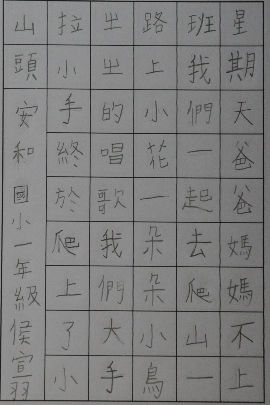 星期天爸爸媽媽不上
班我們一起去爬山一
路上小花一朵朵小鳥
ㄓㄓ的唱歌我們大手
拉小手終於爬上了小
山頭
安和國小一年級侯宣羽